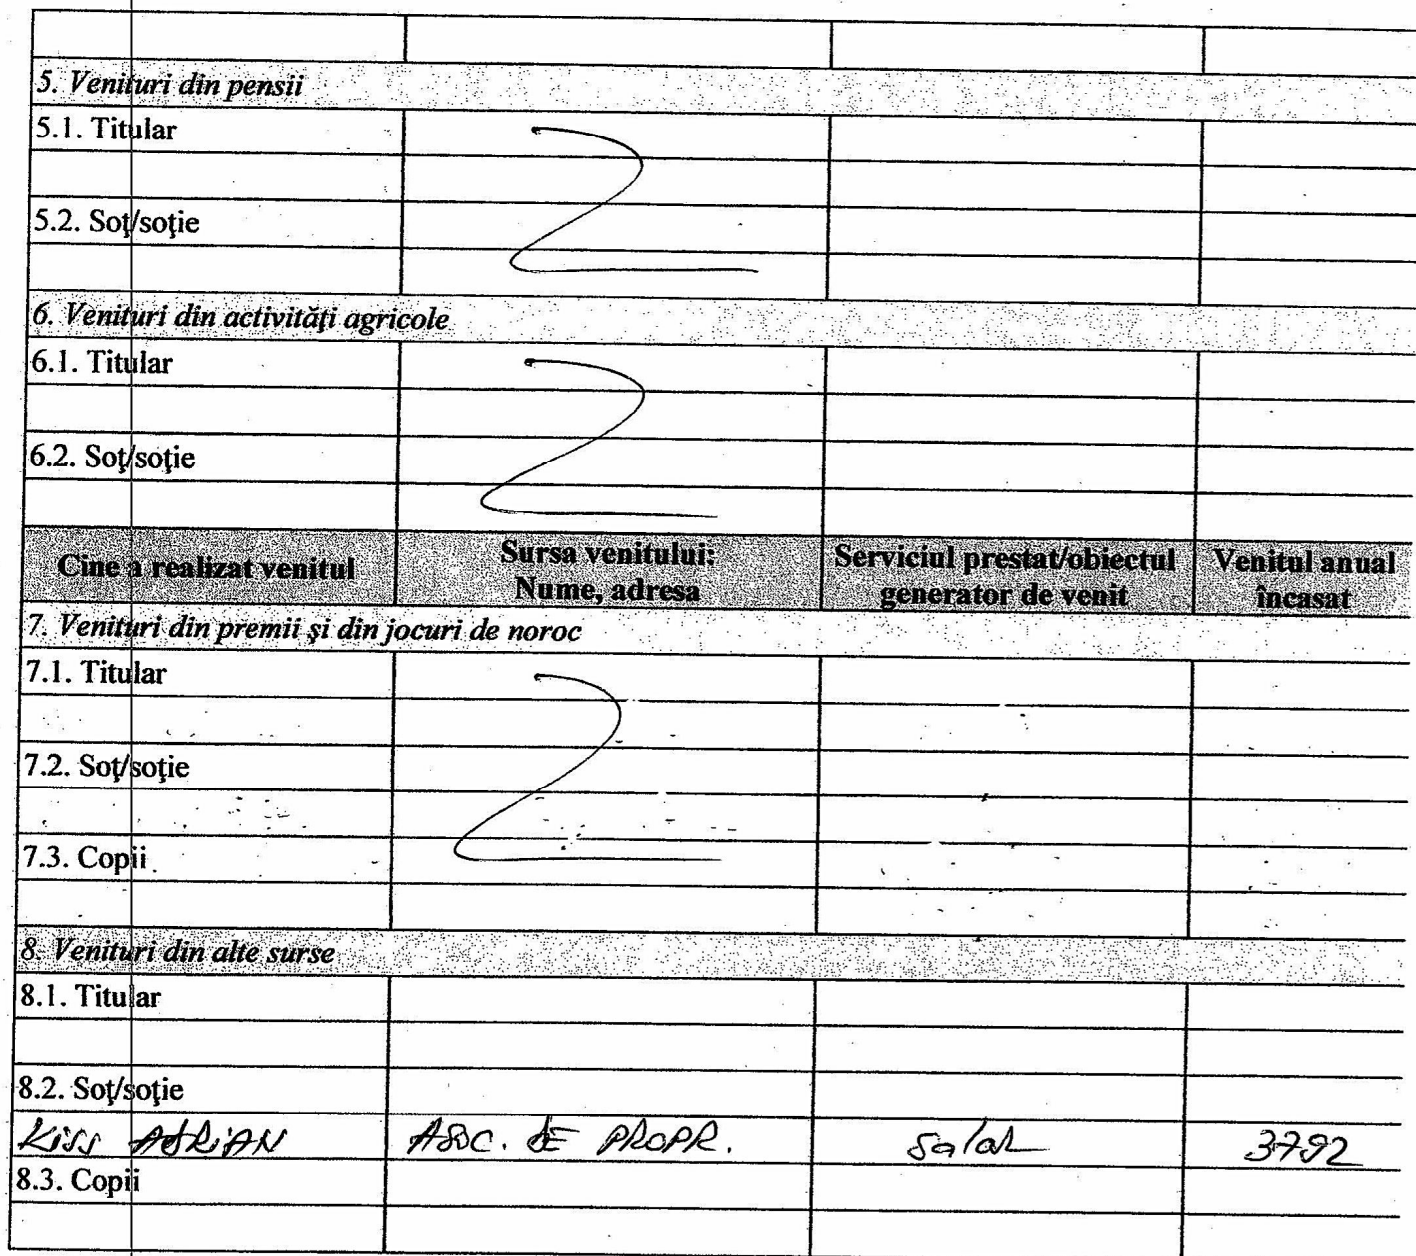 5. Venituri din pensii
5.1. Titular
5.2. Soţ/soţie
6. Venituri din activităţi agricole
6.1. Titular
6.2. Soţ/soţie
Cine a realizat venitul Sursa venitului: Nume, adresa Serviciul prestat/obiectul generator de venit Venitul anual încasat
7. Venituri din premii şi din jocuri de noroc
7.1. Titular
7.2. Soţ/soţie
7.3. Copii
8. Venituri din alte surse
8.1. Titular
8.2. Soţ/soţie
Kiss ADRiAN ASOC. DE PROPR. salar 3792
8.3. Copii